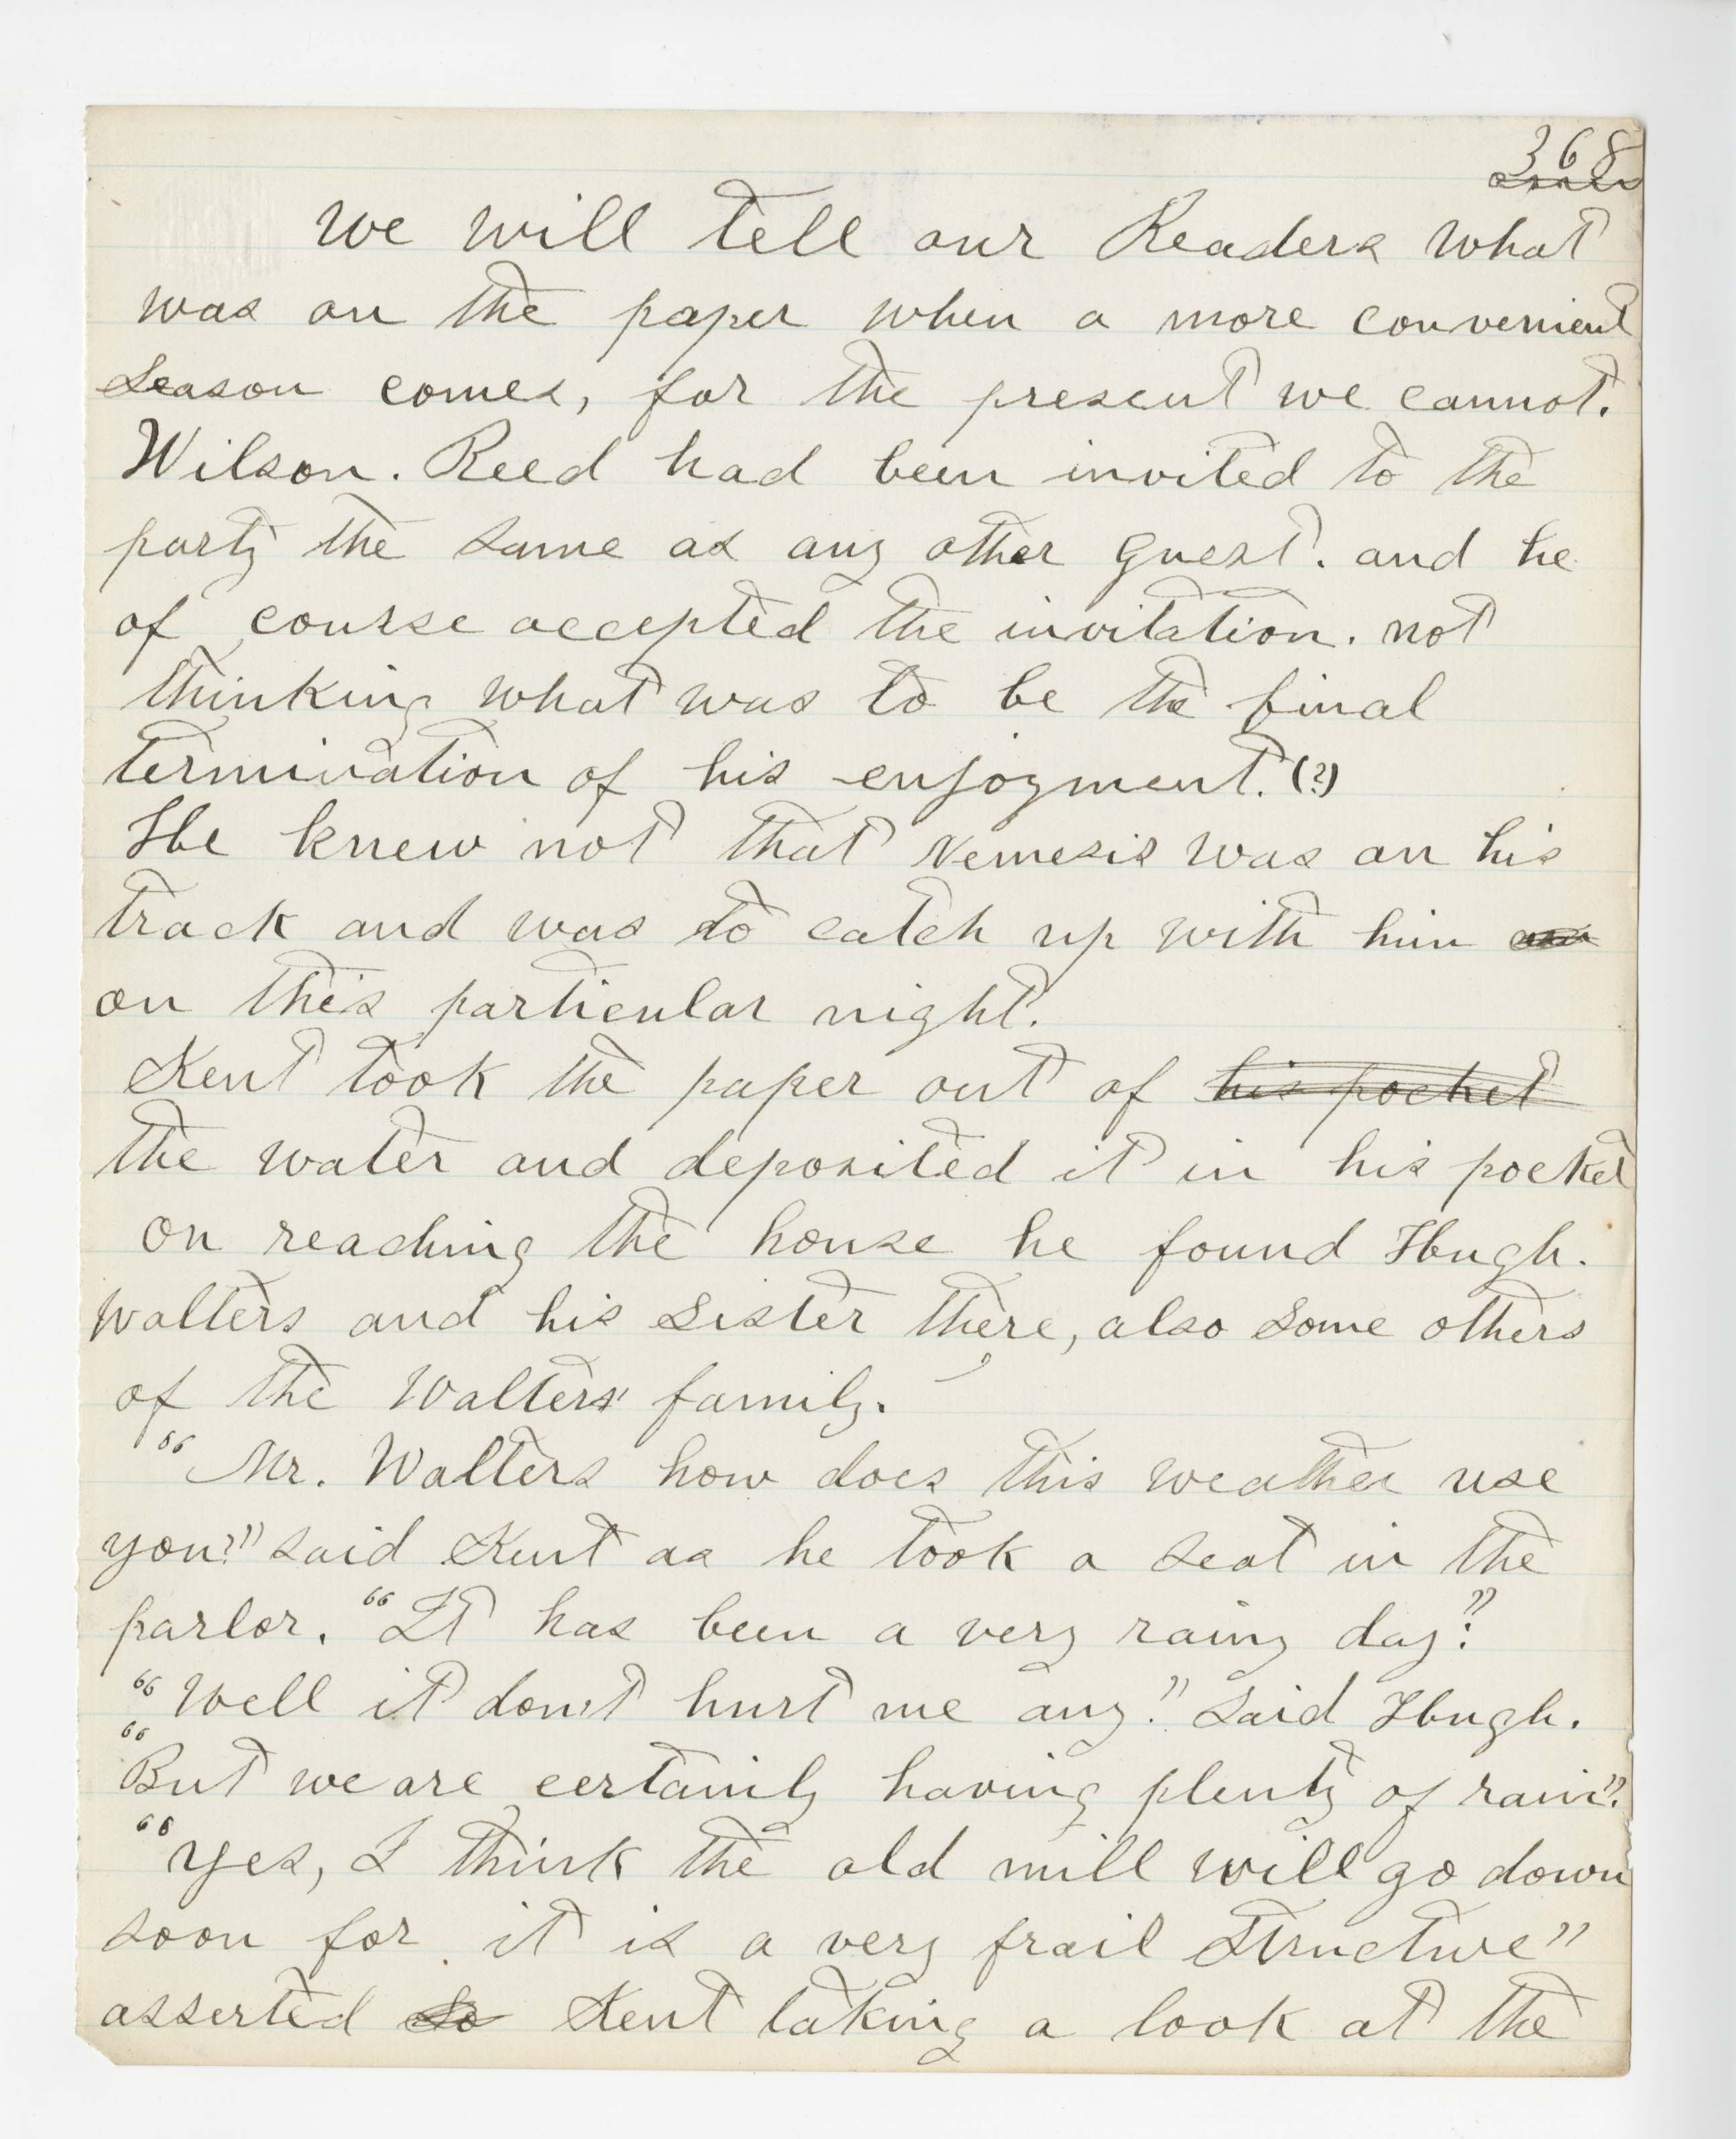 368
We will tell our Readers what
was on the paper when a more convenient
Season comes, for the present we cannot.
Wilson. Reed had been invited to the
party the same as any other guest. and he
of course accepted the invitation. not
thinking what was to be the final
termination of his enjoyment.(?)
He knew not that Nemesis was on his
track and was to catch up with him
on this particular night.
Kent took the paper out of his pocket
the water and deposited it in his pocket
on reaching the house he found Hugh.
Walters and his Sister there, also some others
of the Walters' family.
"Mr. Walters how does this weather use
you?" said Kent as he took a seat in the
parlor. "It has been a very rainy day."
"Well it don't hurt me any." Said Hugh.
"But we are certainly having plenty of rain".
"Yes, I think the old mill will go down
soon for it is a very frail Structure"
asserted So Kent taking a look at the